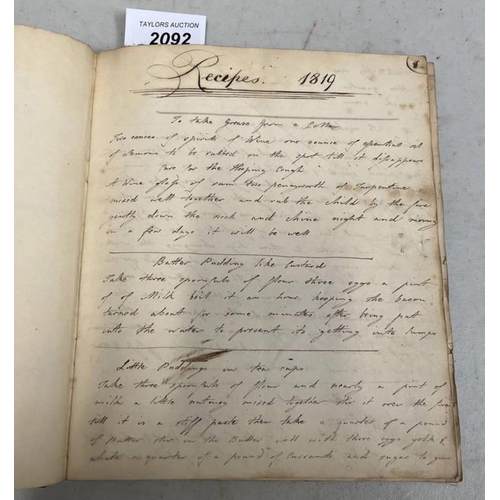 TAYLORS AUCTION
2092
Recipes. 1819
To take Grease from a
Two ounces of spirits of Wine one ounce of essential oil
of Lemons to be rubbed on the spot till it disappears
for the Hooping Cough
A Wine glass of rum two pennyworth of Turpentine
mixed well together and rub the child by the fire
gently down the neck and chine night and morning
in a few days it will be well
Batter Pudding like Custard
Take three spoonfuls of flour three eggs a pint
of of Milk boil it an hour keeping the
turned about for some minutes after being put
into the water to prevent its getting into lumps
Little Puddings in tea cups
Take three spoonfuls of flour and nearly a pint of
milk a little nutmeg mixed together stir it over the fire
till it is a stiff paste then take a quarter of a pound
of Butter stir in the Butter well with three eggs yolk &
white a quarter of a pound of Currants and sugar to your